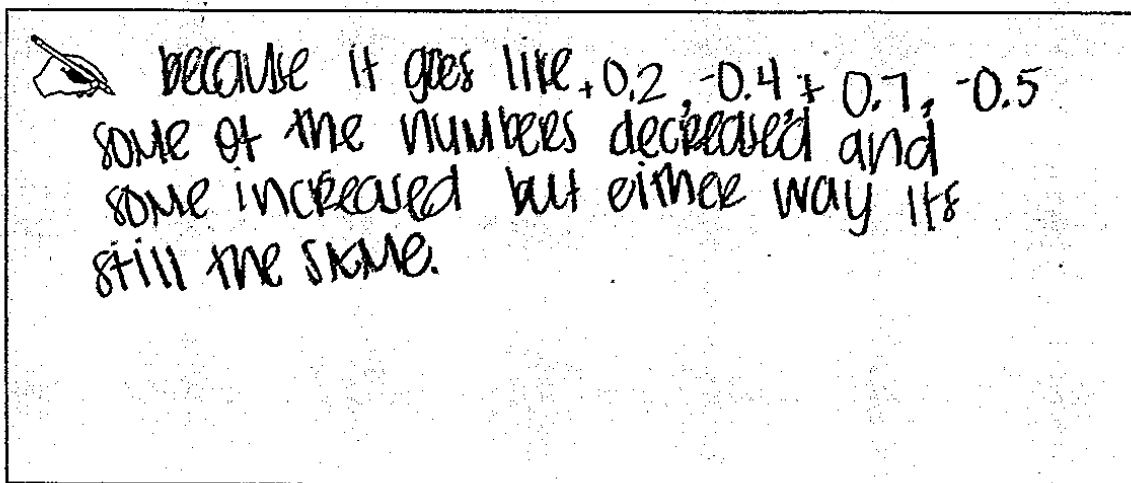 because it goes like, +0.2, -0.4, + 0.7, -0.5
some of the numbers decreased and
some increased but either way its
still the same.